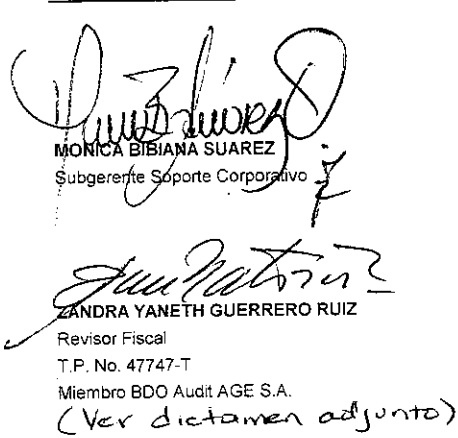 MONICA BIBIANA SUAREZ
Subgerente Soporte Corporativo
ZANDRA YANETH GUERRERO RUIZ
Revisor Fiscal
T.P. No. 47747-T
Miembro BDO Audit AGE S.A.
(Ver dictamen adjunto)